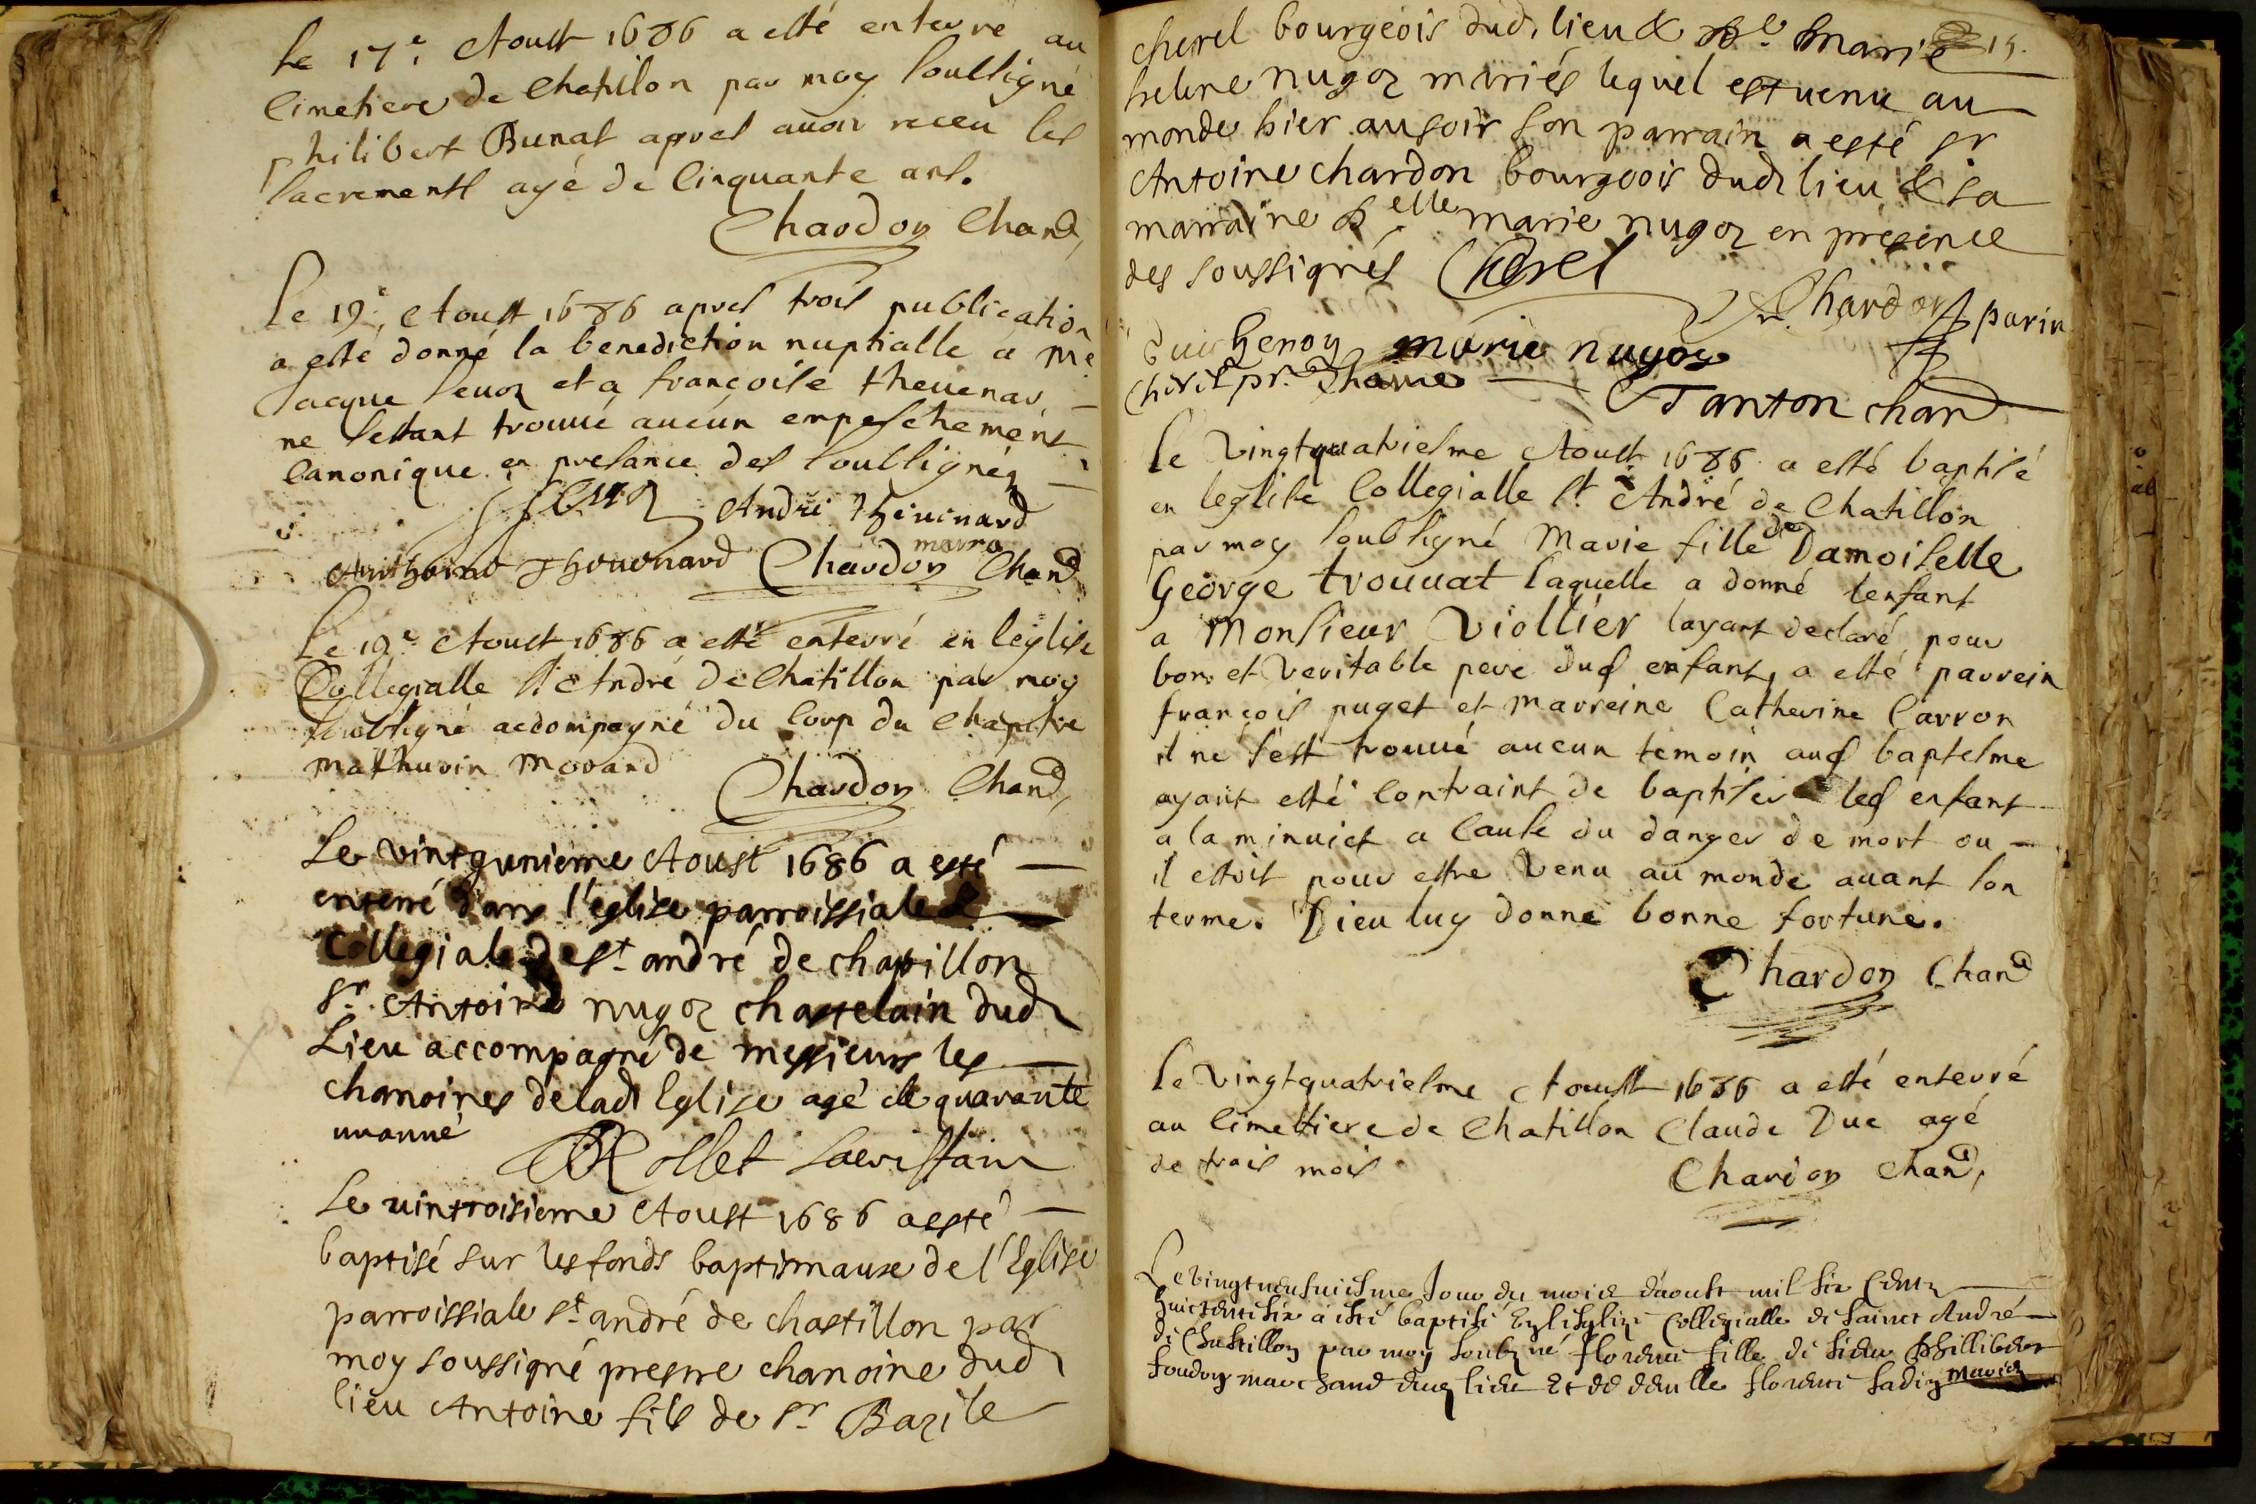 Le 17e. Aoust 1686 a esté enterré au
Cimetiere de Chatillon par moy soussigné
philibert Bunat apres auoir receu les
sacrements agé de Cinquante ans.
Chardon Chane,
Le 19e. Aoust 1686 apres trois publication
a esté donné la benediction nuptialle a Me
Jacque et a françoise theuenar
ne sestant trouué aucun empeschement
Canonique en presance des soussignéz
André Theuenard
Anthoine Theuenard Chardon Chane
Le 19e Aoust 1686 a esté enterré en leglise
Collegialle St André de Chatillon par moy
soussigné accompagné du Corp du Chapitre
mathurin Morard
Chardon Chane,
Le vintgunieme Aoust 1686 a esté
enterré dans l'eglise parroissiale &
Collegiale de St andré de chatillon
Sr. Antoine nugoz chastelain dud
Lieu accompagné de messieurs les
chanoines de lad Eglise agé de quarante
un année
Rollet Sacristain
Le vintroisieme Aoust 1686 a esté
baptisé sur les fonds baptismaux de l'Eglise
parroissiale St andré de chastillon par
moy soussigné prestre chanoine dud
lieu Antoine fils de Sr Bazile
cherel bourgeois dud. lieu & marie 15.
helene nugoz mariés lequel est uenu au
monde hier au soir son parrain a esté Sr
Antoine chardon bourgeois dud lieu & sa
marraine Delle marie nugoz en présence
des soussignés Cherel
Chardon parin
Guichenon marie nugoz
Tanton chan
Le Vingtquatriesme Aoust 1686 a esté baptisé
en leglise Collegialle St André de Chatillon
par moy soussigné Marie fille de Damoiselle
George trouuat laquelle a donné lenfant
a Monsieur Viollier layant declaré pour
bon et veritable pere dud enfant, a esté parrein
françois puget et marreine Catherine Carron
il ne sest trouué aucun temoin aud baptesme
ayant esté Contraint de baptiser led enfant
a la minuict a Cause du danger de mort ou
il estoit pour estre venu au monde auant son
terme. Dieu luy donne bonne fortune.
Chardon Chane
Le Vingtquatriesme Aoust 1686 a esté enterré
au Cimettiere de Chatillon Claude Duc agé
de trois mois
Chardon Chane,
Le vingtneufuiesme Jour du mois daoust mil six Centz
huictantesix a esté baptisé En leglize Collegialle de Sainct André
de Chastillon par moy soubzné florence fille de sieur Phillibert
marchand lieu Et de delle florence